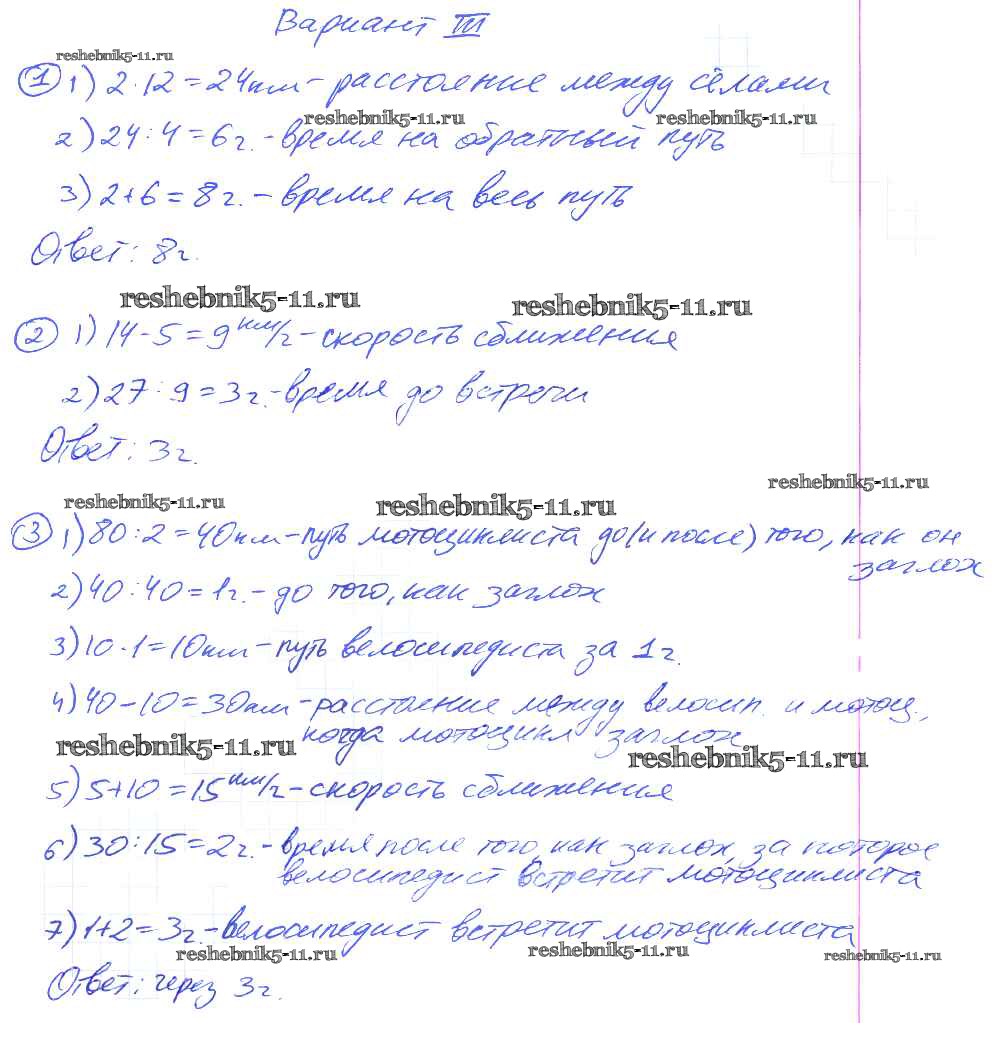 Вариант III
reshebnik5-11.ru
① 1) 2·12=24км-расстояние между сёлами
reshebnik5-11.ru reshebnik5-11.ru
2) 24:4=6г.-время на обратный путь
3) 2+6=8г.-время на весь путь
Ответ: 8г.
reshebnik5-11.ru reshebnik5-11.ru
② 1) 14-5=9км/г-скорость сближения
2) 27:9=3г.-время до встречи
Ответ: 3г.
reshebnik5-11.ru reshebnik5-11.ru reshebnik5-11.ru
③ 1) 80:2=40км-путь мотоциклиста до(и после) того, как он
заглох
2) 40:40=1г.-до того, как заглох
3) 10·1=10км-путь велосипедиста за 1г.
4) 40-10=30км-расстояние между велосип. и мотоц.,
когда мотоцикл заглох
reshebnik5-11.ru reshebnik5-11.ru
5) 5+10=15км/г-скорость сближения
6) 30:15=2г.-время после того, как заглох, за которое
велосипедист встретит мотоциклиста
7) 1+2=3г.-велосипедист встретит мотоциклиста
reshebnik5-11.ru reshebnik5-11.ru reshebnik5-11.ru
Ответ: через 3г.